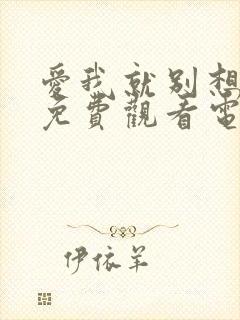 愛我就別想
免費觀看電
伊依羊